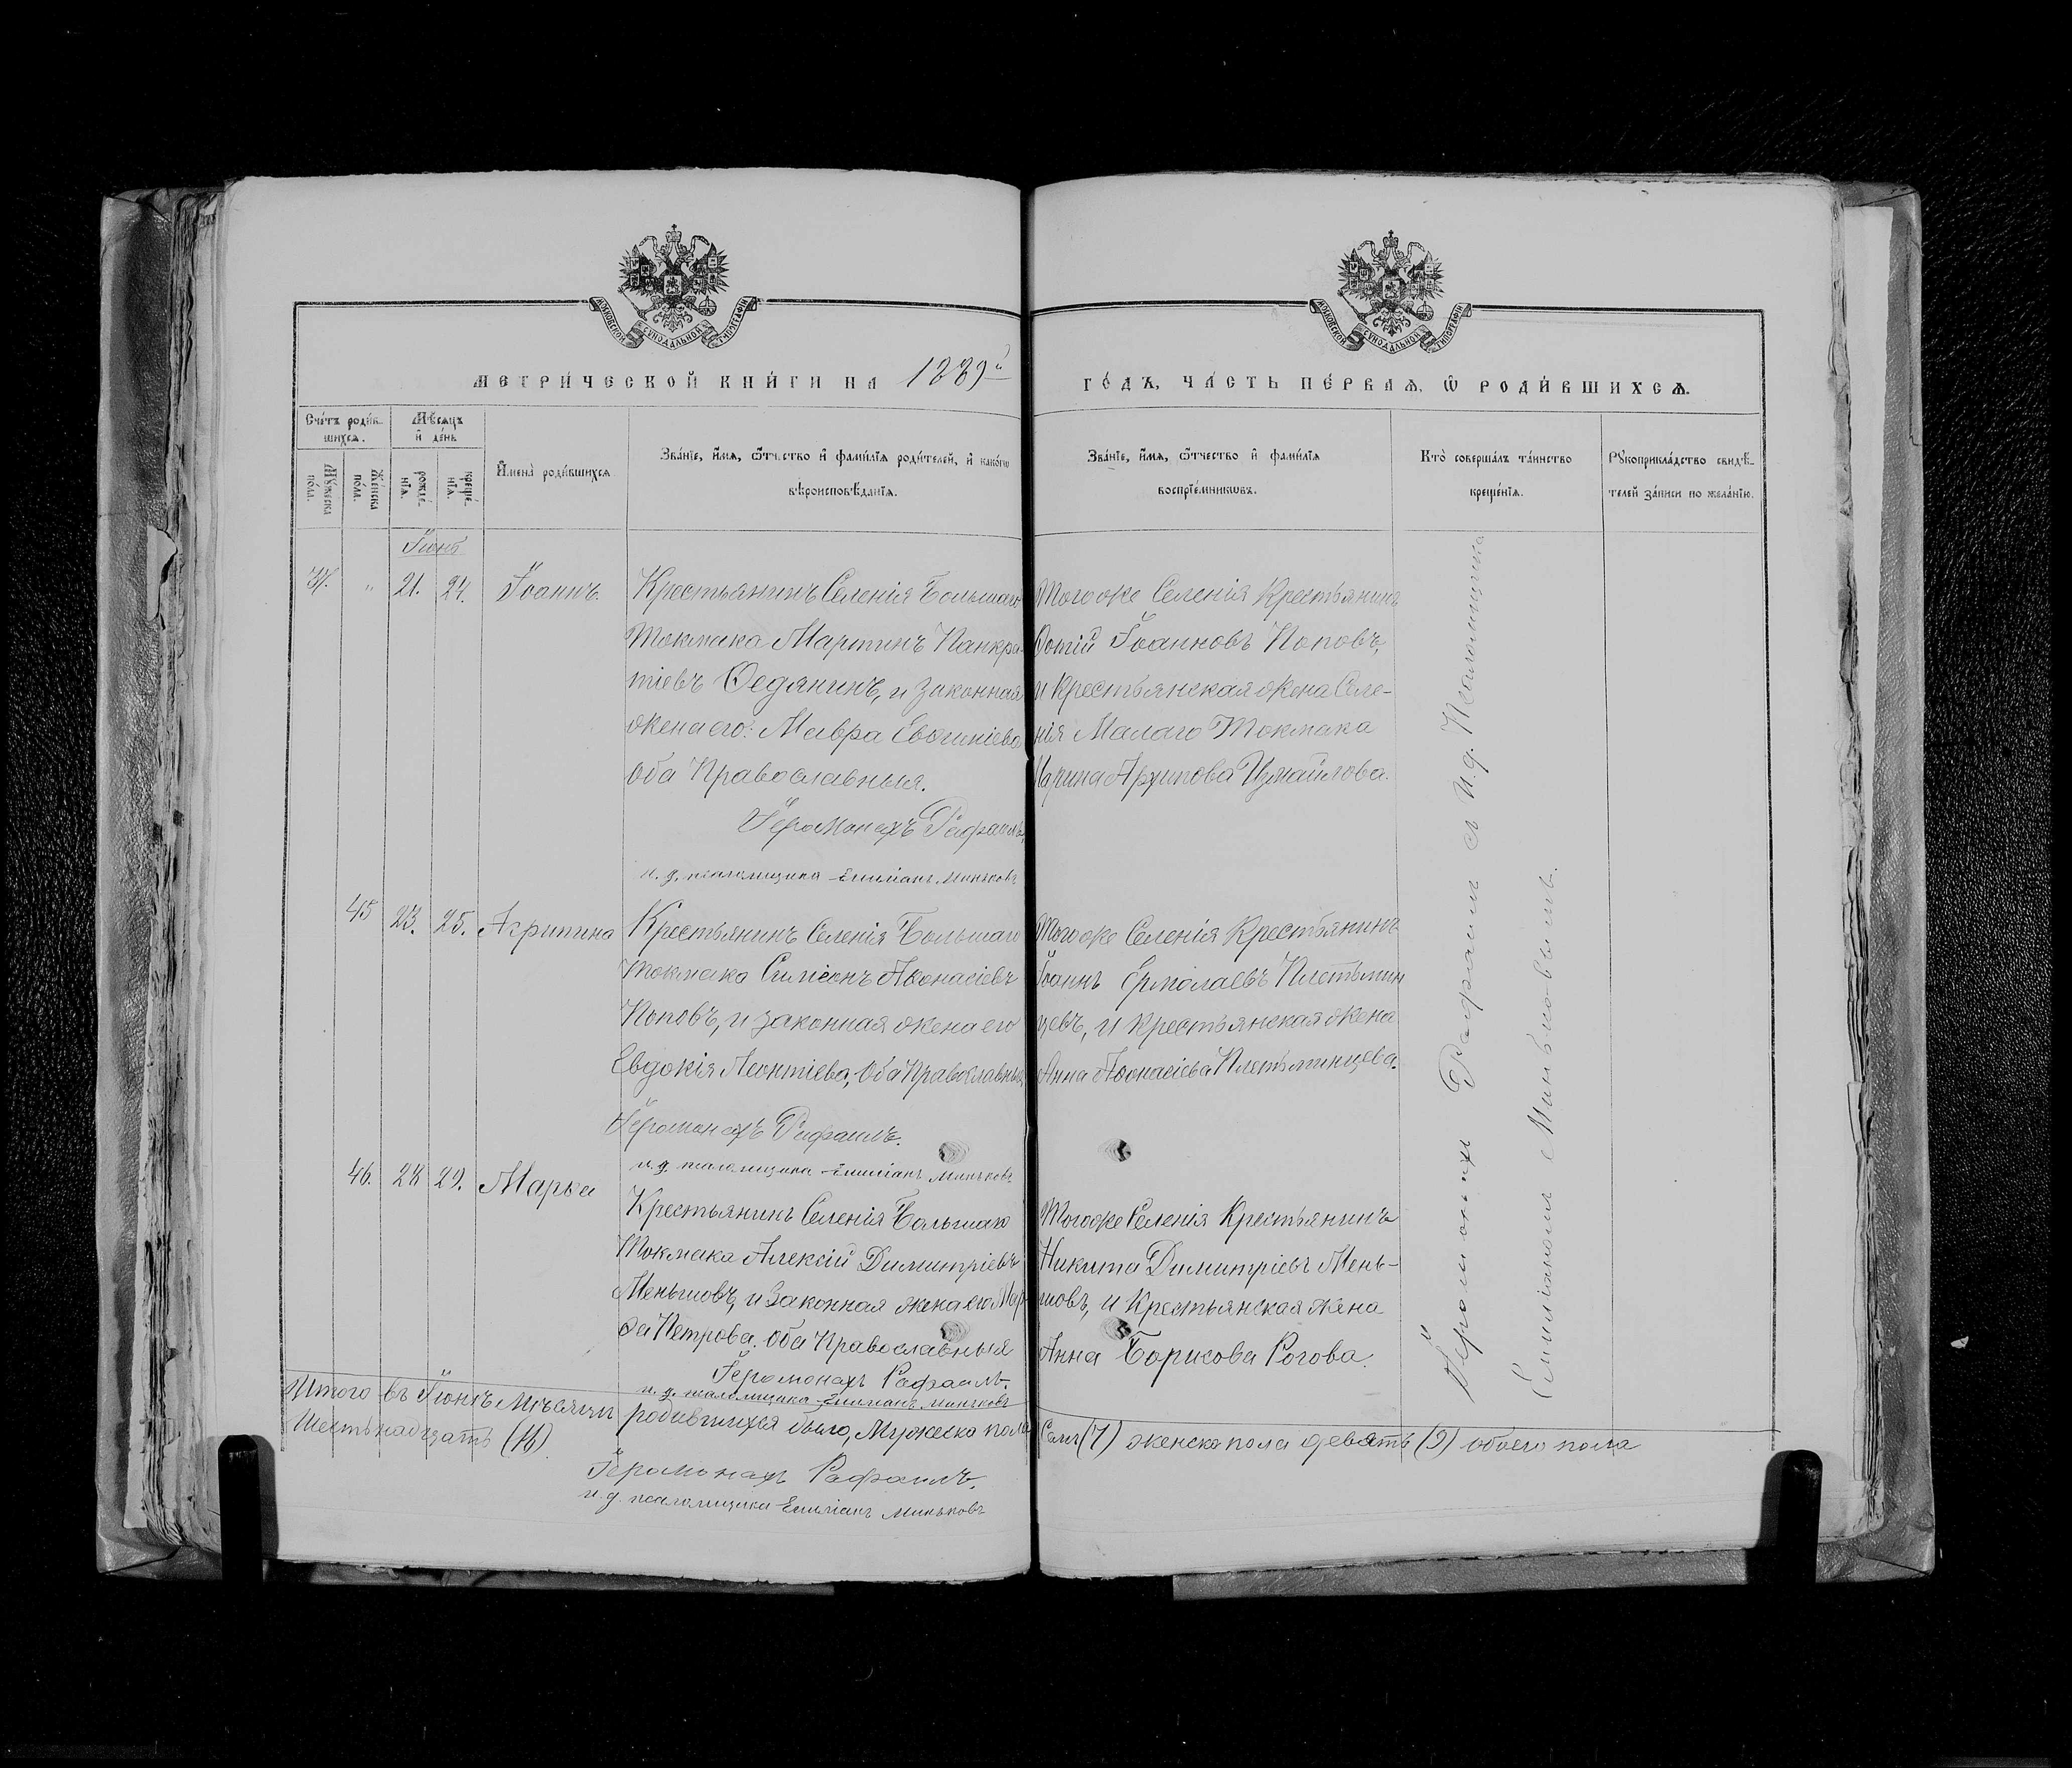 МОСКОВСКОЙ СѴНОДАЛЬНОЙ ТИПОГРАФІИ
МОСКОВСКОЙ СѴНОДАЛЬНОЙ ТИПОГРАФІИ
МЕТРИ́ЧЕСКОЙ КНИ́ГИ НА 1889й
ГО́ДЪ, ЧА́СТЬ ПЕ́РВАѦ, Ѡ РОДИ́ВШИХСѦ.
Сче́тъ роди́в-
шихсѧ.
Мꙋ́жеска по́ла.
Же́нска по́ла.
Мѣ́сѧцъ
и҆ де́нь
рожде́-
нїѧ.
креще́-
нїѧ.
И҆мена̀ роди́вшихсѧ
Зва́нїе, и҆́мѧ, ѻ҆́тчество и҆ фами́лїѧ роди́телей, и҆ како́гѡ
вѣроисповѣ́данїѧ.
Зва́нїе, и҆́мѧ, ѻ҆́тчество и҆ фами́лїѧ
воспрїе́мникѡвъ.
Кто̀ соверша́лъ та́инство
креще́нїѧ.
Рꙋкоприкла́дство свидѣ́-
телей за́писи по жела́нїю.
Іюнь
37. " 21. 24. Іоаннъ.
Крестьянинъ Селенія Большаго
Токмака Мартинъ Панкра-
тіевъ Ѳедянинъ, и законная
жена его: Мавра Евѳиміева
оба Православныя.
Іеромонахъ Рафаилъ,
и. д. псаломщика Емиліанъ Миньковъ
Тогоже Селенія Крестьянинъ
Фотій Іоанновъ Поповъ,
и крестьянская жена Селе-
нія Малаго Токмака
Марина Архипова Измайлова.
45 23. 25. Агрипина
Крестьянинъ Селенія Большаго
Токмака Симеонъ Аѳонасіевъ
Поповъ, и законная жена его
Евдокія Леонтіева, Оба Православныя,
Іеромонахъ Рафаилъ.
и. д. псаломщика Емиліанъ Миньковъ
Тогоже Селенія Крестьянинъ
Іоаннъ Ермолаевъ Плетьмин
цевъ, и крестьянская жена
Анна Аѳонасіева Плетьминцева.
46. 28 29. Марѳа
Крестьянинъ Селенія Большаго
Токмака Алексій Димитріевъ
Меньшовъ, и Законная жена его Мар-
ѳа Петрова. Оба Православныя
Іеромонахъ Рафаилъ.
и. д. псаломщика Емиліанъ Миньковъ
Тогоже Селенія Крестьянинъ
Никита Димитріевъ Мень-
шовъ, и Крестьянская жена
Анна Борисова Рогова.
Іеромонахъ Рафаилъ съ И.д. Псаломщика
Емиліаномъ Миньковымъ.
Итого въ Іюнѣ мѣсяцѣ родившихся было, Мужеска пола Семь (7) женска пола девять (9) обоего пола
Шестьнадцать (16)
Іеромонахъ Рафаилъ.
и. д. псаломщика Емиліанъ Миньковъ